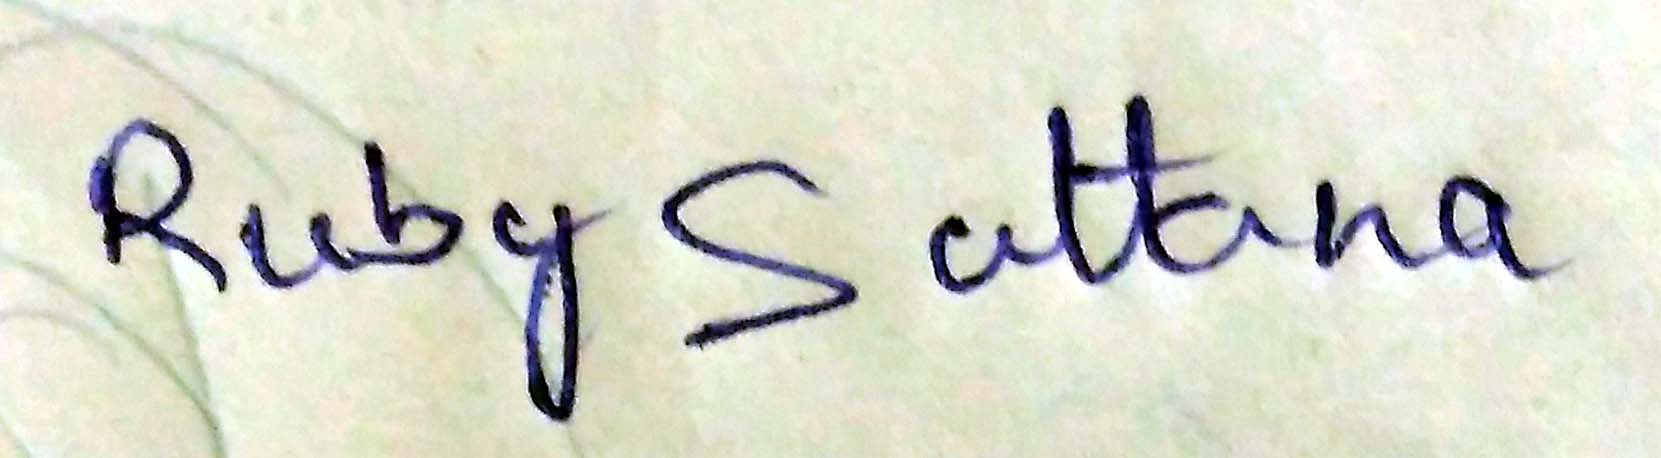 Ruby Sattana